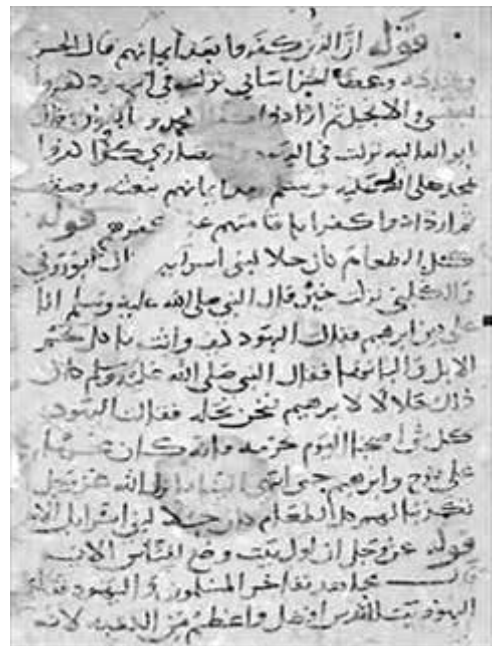 قوله ان الذين كفروا بعد ايمانهم قال الحسن
وقتادة وعطا الخراساني نزلت في اليهود كفروا
بعيسى والانجيل ثم ازدادوا بمحمد والقران وقال
ابو العاليه نزلت في اليهود والنصارى كفروا
بمحمد صلى الله عليه وسلم بعد ايمانهم بنعته وصفته
ثم ازدادوا كفرا باقامتهم على كفرهم قوله
كل الطعام كان حلا لبني اسرايل قال ابو روق
والكلبي نزلت حين قال النبي صلى الله عليه وسلم انا
على دين ابرهيم فقالت اليهود كيف وانت تاكل لحوم
الابل والبانها فقال النبي صلى الله عليه وسلم كان
ذلك حلالا لابرهيم فنحن نحله فقالت اليهود
كل شي اصبحنا اليوم نحرمه وانه كان محرما
على نوح وابرهيم حتى انتهى الينا فانزل الله عز وجل
تكذيبا لهم كل الطعام كان حلا لبني اسرايل الايه
قوله عز وجل ان اول بيت وضع للناس الايه
قال مجاهد تفاخر المسلمون واليهود فقالت
اليهود بيت المقدس افضل واعظم من الكعبه لانه